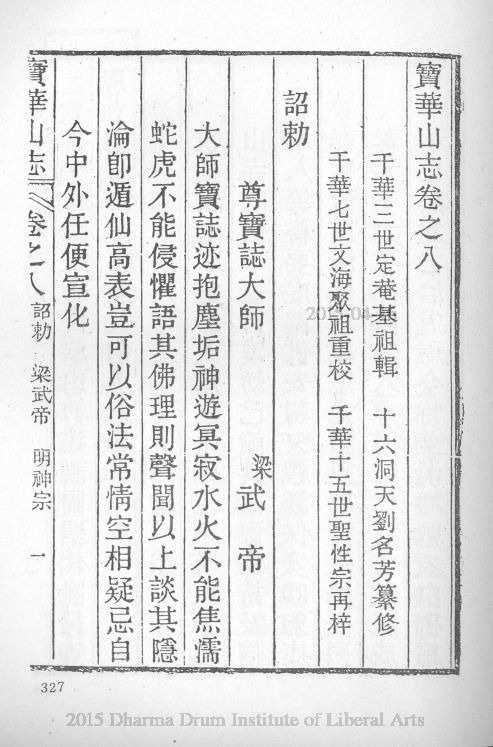 寶華山志卷之八
千華三世定菴基祖輯 十六洞天劉名芳纂修
千華七世文海聚祖重校 千華十五世聖性宗再梓
詔勅
尊寶誌大師 梁武帝
大師寶誌迹抱塵垢神遊冥寂水火不能焦濡
蛇虎不能侵懼語其佛理則聲聞以上談其隱
淪卽遁仙高表豈可以俗法常情空相疑忌自
今中外任便宣化
寶華山志 卷之八 詔勅 梁武帝 明神宗 一
327
2015 Dharma Drum Institute of Liberal Arts